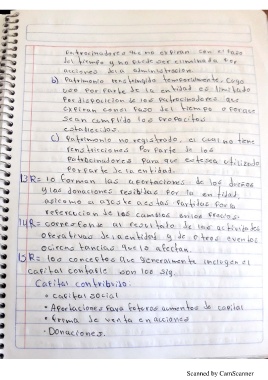 patrocinadores que no expiran con el paso
del tiempo y no puede ser eliminada por
acciones de la administracion.
b) Patrimonio restringido temporalmente, cuyo
uso por parte de la entidad es limitado
por disposicion de los patrocinadores que
expiran con el paso del tiempo o porque
sean cumplido los propositos
establecidos
c) Patrimonio no la cual no tiene
restricciones por parte de los
patrocinadores para que este sea utilizado
por parte de la entidad.
13R= lo forman las aportaciones de los dueños
y las donaciones recibidas por la entidad
asi como a ajuste a estas partidas por la
repercucion de los cambios en los precios.
14R= corresponde al resultado de las actividades
operativas de la entidad y de otros eventos
o circunstancias que lo afectan.
15R= los conceptos que generalmente incluyen el
capital contable son los sig.
Capital contribuido.
• capital social
• Aportaciones para futuros aumentos de capital
• Prima de venta en acciones
• Donaciones.
Scanned by CamScanner